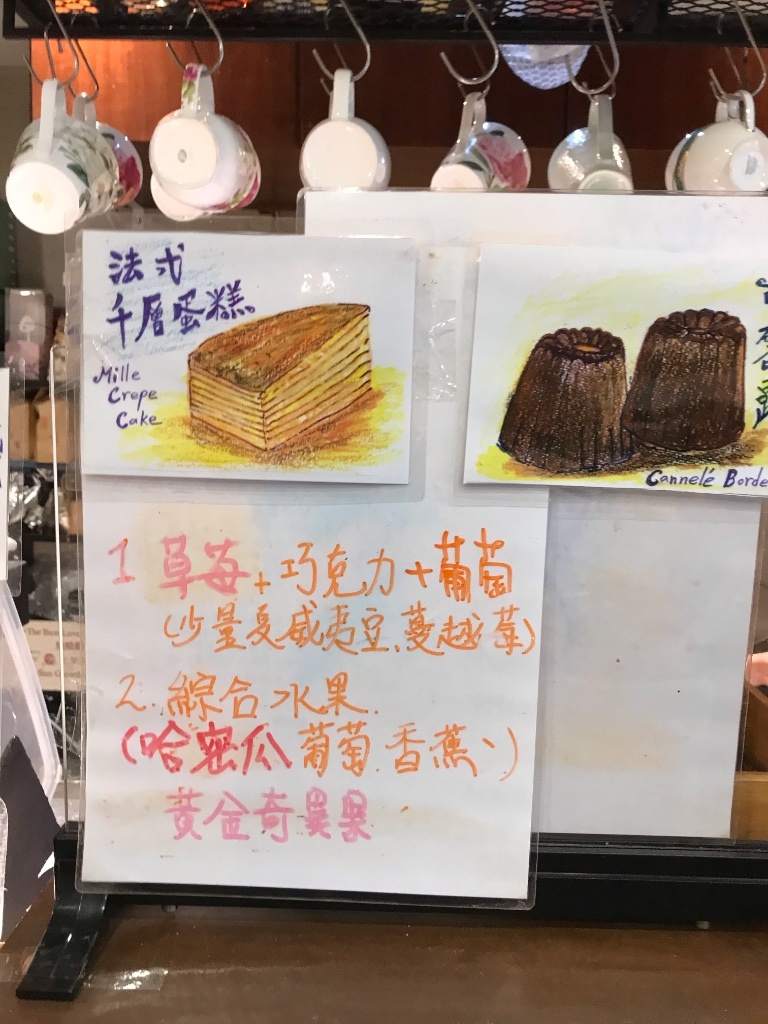 法式
千層蛋糕。
Mille
Crepe
Cake
Cannelé Borde
1 草莓+巧克力+葡萄
(少量夏威夷豆、蔓越莓)
2. 綜合水果
(哈密瓜 葡萄、香蕉、)
黃金奇異果